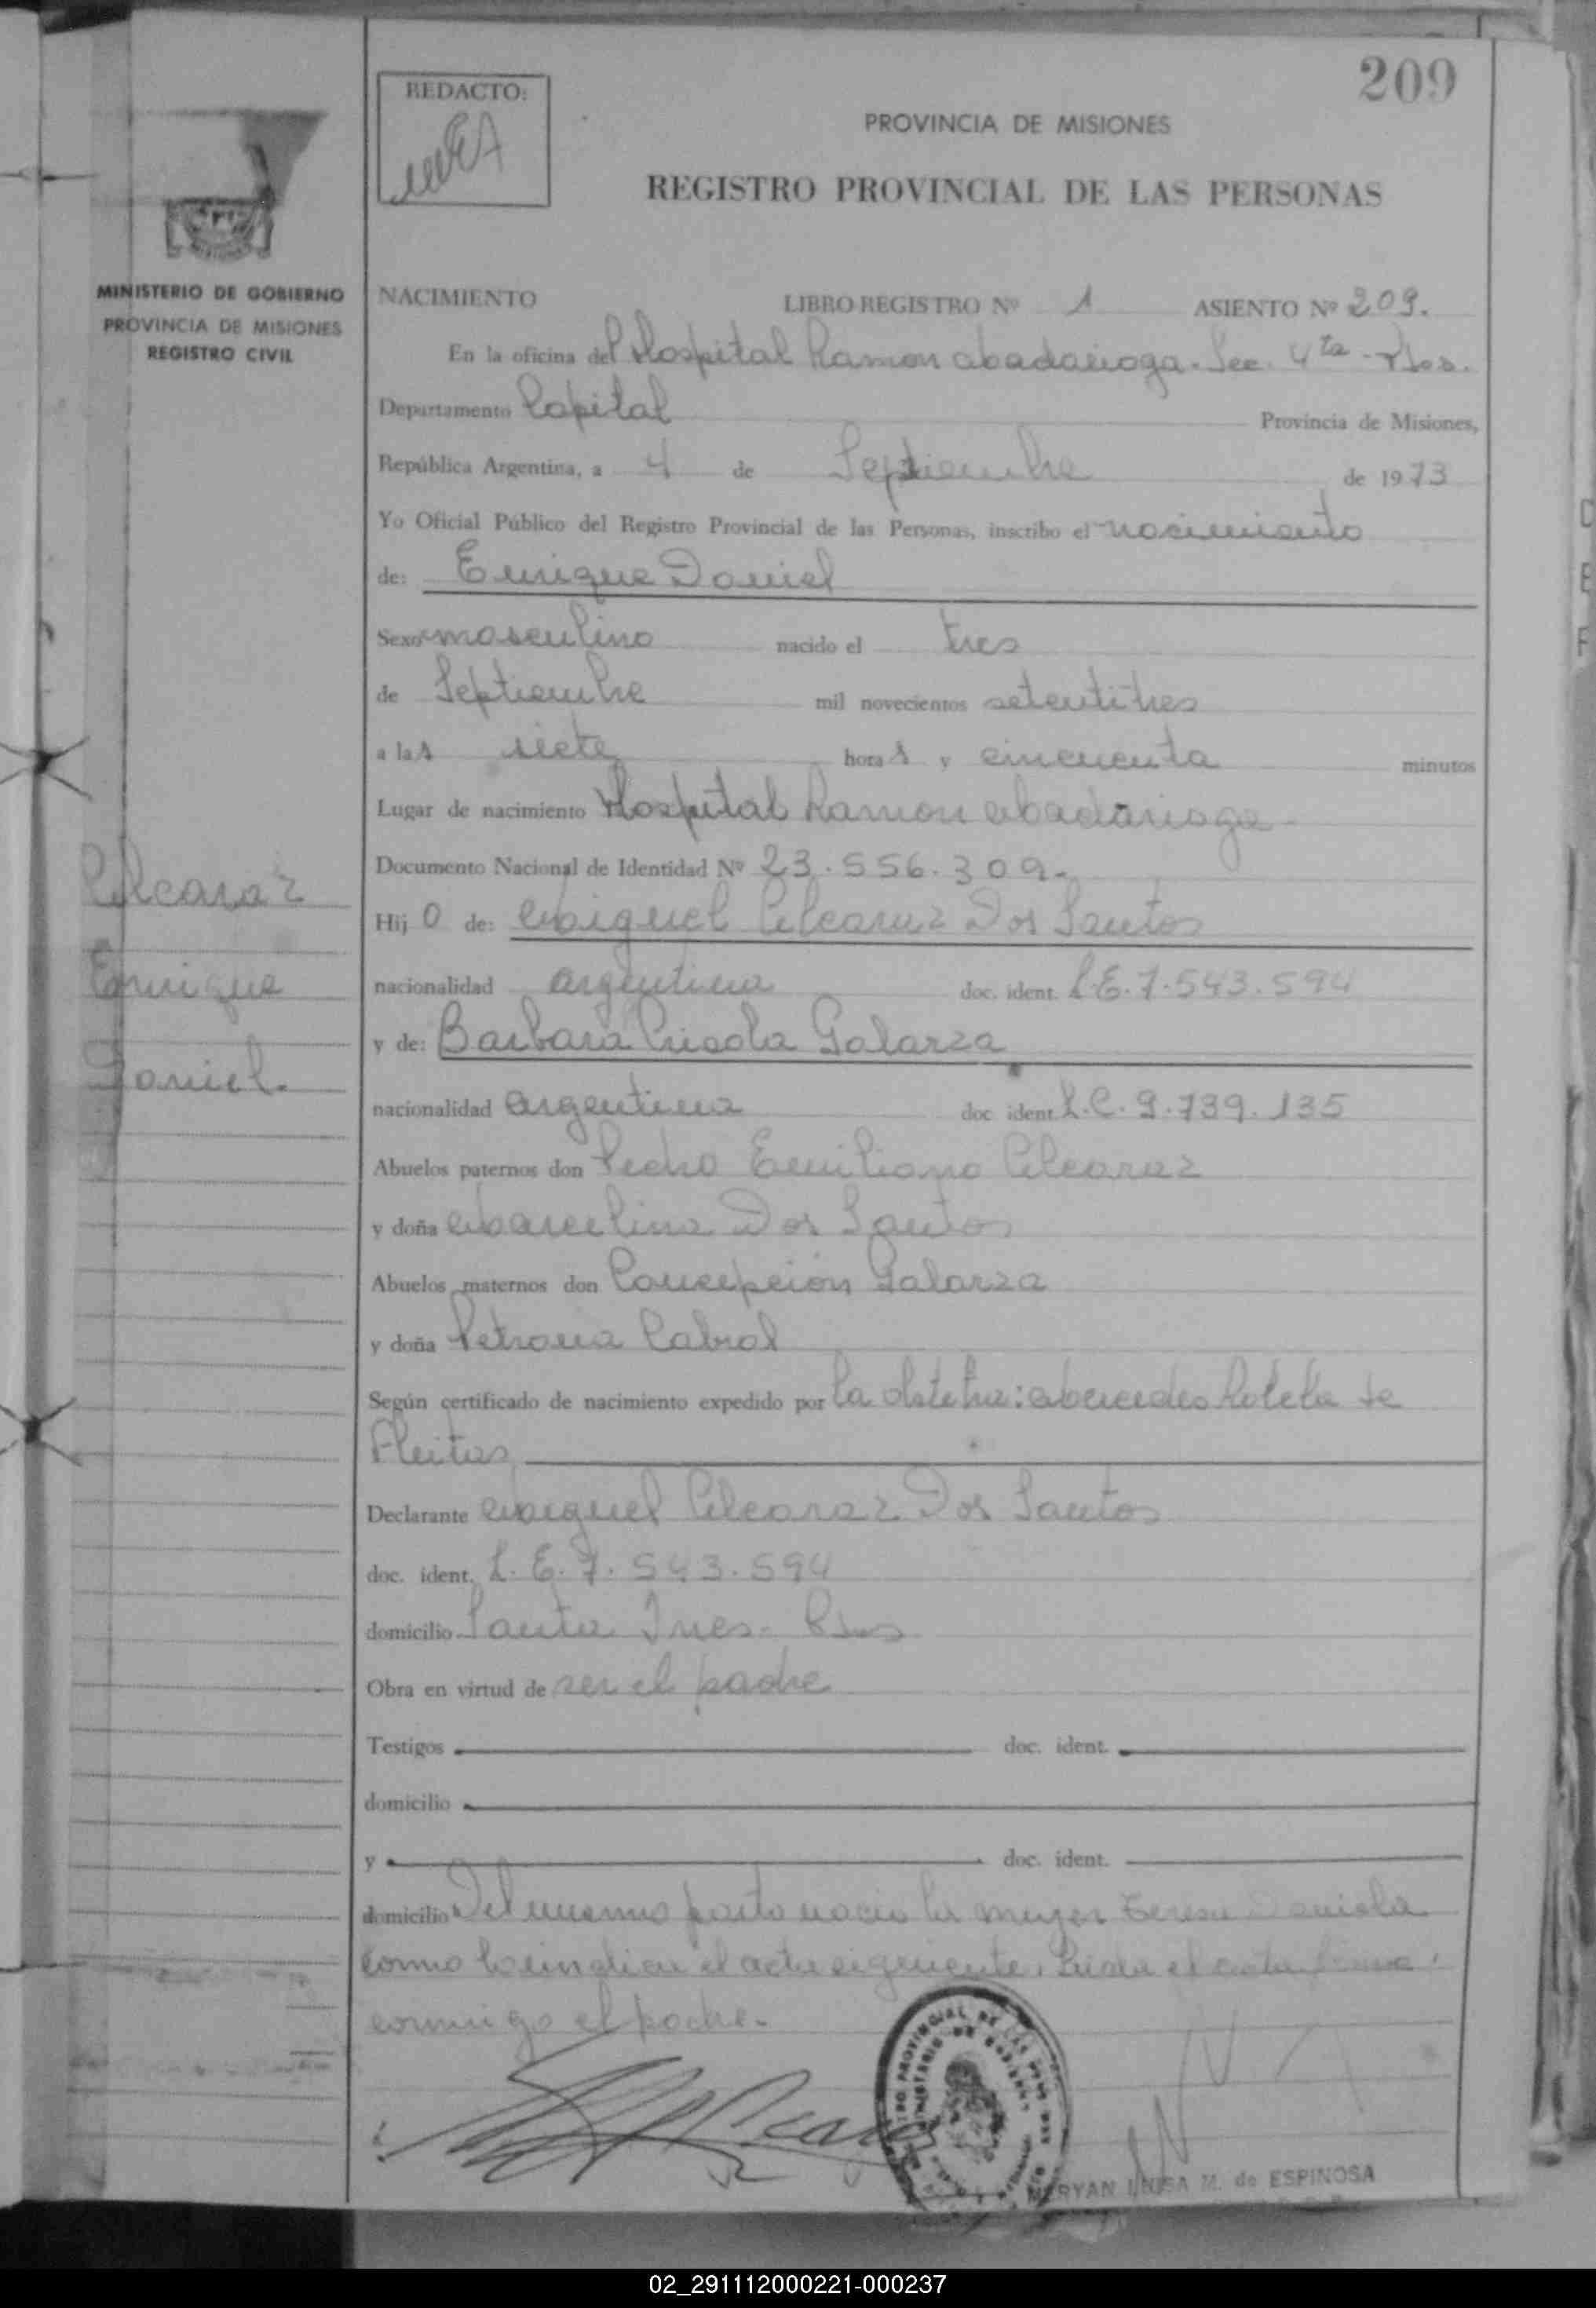 209
REDACTO:
PROVINCIA DE MISIONES
REGISTRO PROVINCIAL DE LAS PERSONAS
MINISTERIO DE GOBIERNO
PROVINCIA DE MISIONES
REGISTRO CIVIL
NACIMIENTO LIBRO REGISTRO Nº 1 ASIENTO Nº 209.
En la oficina del Hospital Ramon Madariaga - Sec. 4ta - Pdas.
Departamento Capital Provincia de Misiones,
República Argentina, a 4 de Septiembre de 1973
Yo Oficial Público del Registro Provincial de las Personas, inscribo el nacimiento
de: Enrique Daniel
Sexo masculino nacido el tres
de Septiembre mil novecientos setentitres
a las siete horas y cincuenta minutos
Lugar de nacimiento Hospital Ramon Madariaga -
Documento Nacional de Identidad Nº 23.556.309.-
Alcaraz
Enrique
Daniel.
Hijo de: Miguel Alcaraz Dos Santos
nacionalidad argentina doc. ident. L.E. 7.543.594
y de: Barbara Galarza
nacionalidad argentina doc. ident. L.C. 9.739.135
Abuelos paternos don Pedro Emiliano Alcaraz
y doña Marcelina Dos Santos
Abuelos maternos don Concepción Galarza
y doña Petrona Cabral
Según certificado de nacimiento expedido por la obstetra: Mercedes de
Fleitas
Declarante Miguel Alcaraz Dos Santos
doc. ident. L.E. 7.543.594
domicilio Santa Ines - Pdas
Obra en virtud de ser el padre
Testigos doc. ident.
domicilio
y doc. ident.
domicilio Del mismo parto nacio la mujer Teresa Daniela
como lo indica el acta siguiente, Leida el acta firma
conmigo el padre.-
MIRYAN LUISA M. de ESPINOSA
02_291112000221-000237